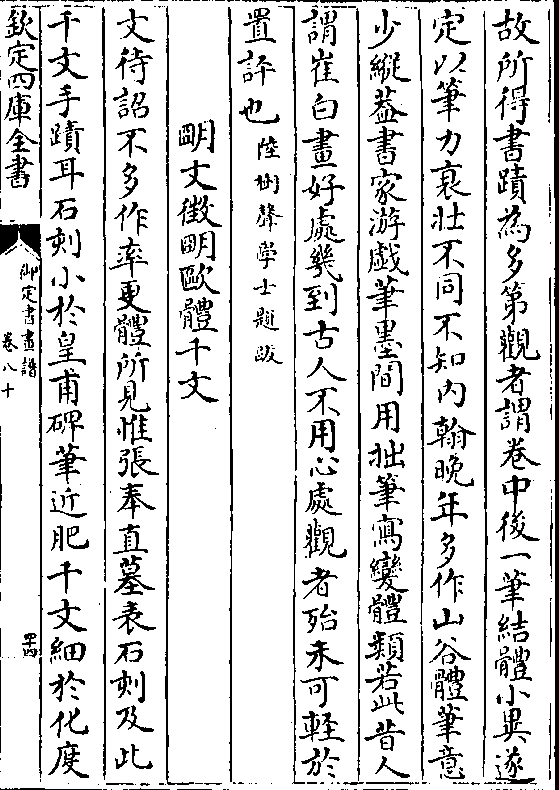 故所得書蹟為多第觀者謂卷中後一筆結體小異遂
定以筆力衰壯不同不知内翰晚年多作山谷體筆意
少縱葢書家游戲筆墨間用拙筆寫變體類若此昔人
謂崔白畫好處幾到古人不用心處觀者殆未可輕於
置評也陸樹聲學士題跋
明文徵明歐體千文
文待詔不多作率更體所見惟張奉直墓表石刻及此
千文手蹟耳石刻小於皇甫碑筆近肥千文細於化度
欽定四庫全書
御定書畫譜
卷八十
四十四